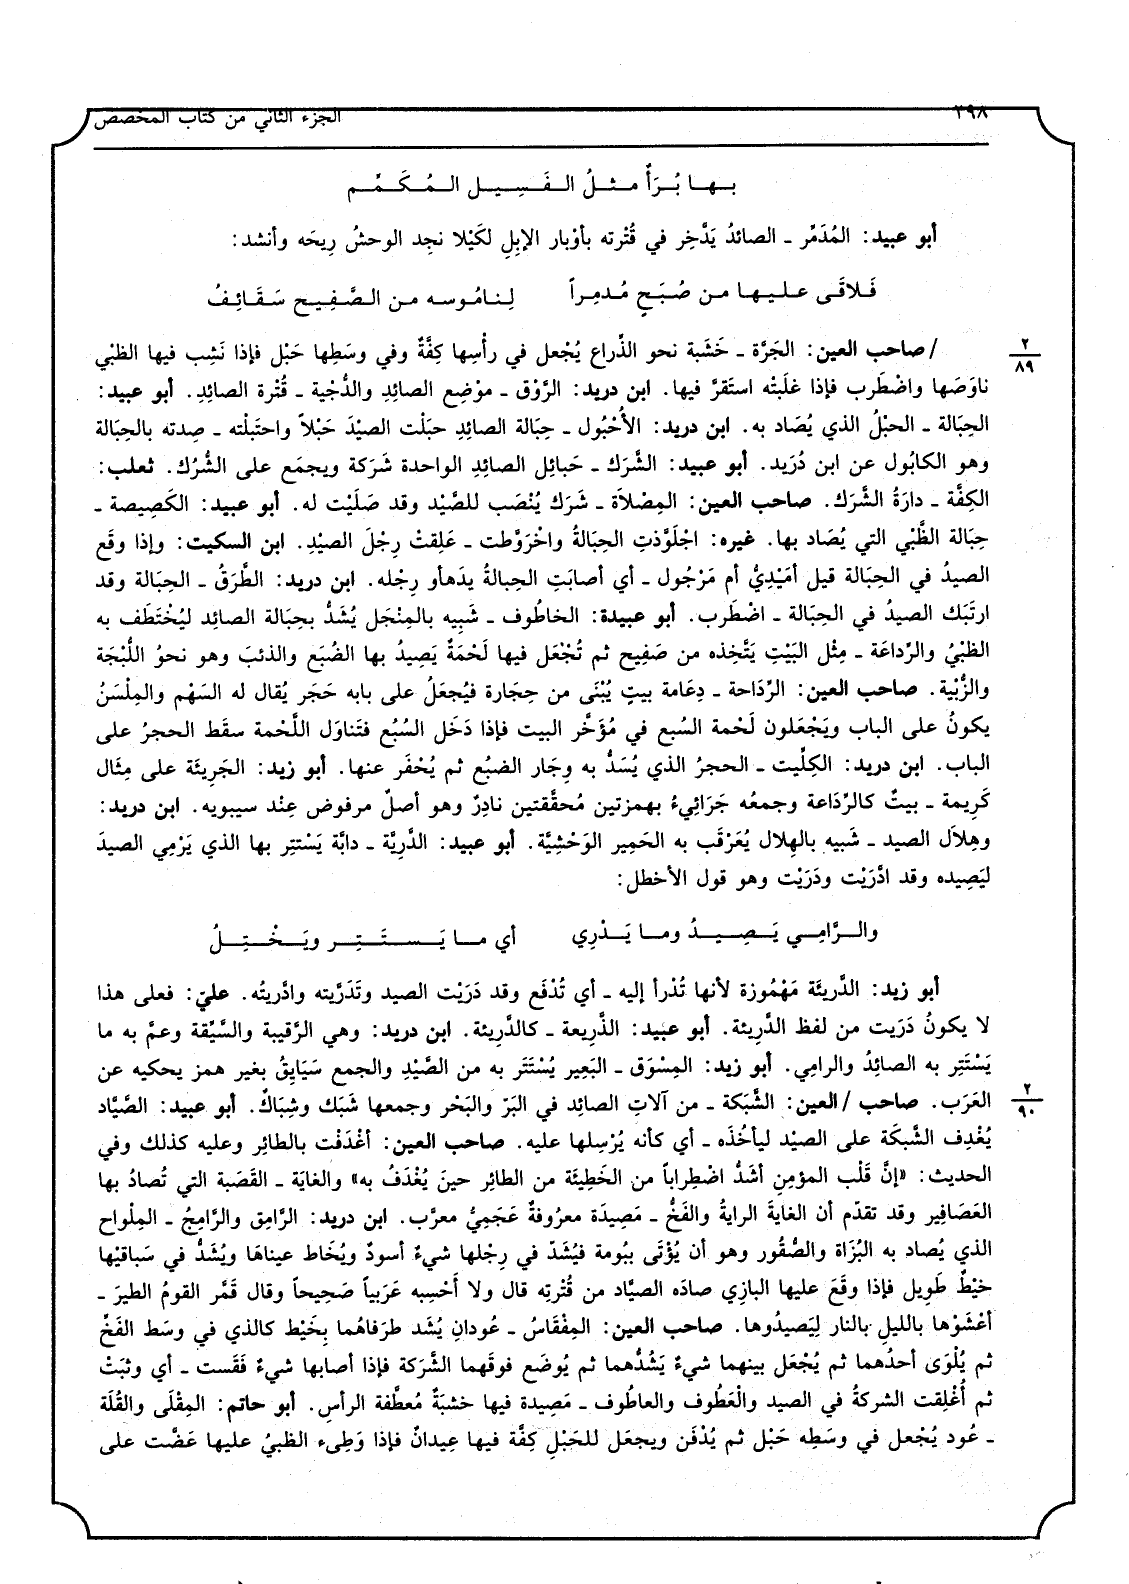 ٣٩٨ الجزء الثاني من كتاب المخصص
بـهـا بُـرَأٌ مـثـلُ الـفَـسِـيـل الـمُـكَـمَّـم
أبو عبيد: المُدَمِّر ـ الصائدُ يَدَّخِر في قُتْرته بأوْبار الإبِلِ لكَيْلا نجِد الوحشُ رِيحَه وأنشد:
فَـلاقَـى عـلـيـهـا مـن صُـبَـحٍ مُـدمِـراً لِـنـامُـوسه مـن الـصَّـفِـيـح سَـقَـائِـفُ
٢
٨٩
/صاحب العين: الجَرَّة ـ خَشَبة نحو الذِّراع يُجْعل في رأْسِها كِفَّة وفي وسَطِها حَبْل فإذا نَشِب فيها الظبْي
ناوَصَها واضْطَرب فإذا غلَبَتْه استَقرَّ فيها. ابن دريد: الزَّوْق ـ موْضِع الصائِدِ والدُّجْية ـ قُتْرة الصائِدِ. أبو عبيد:
الحِبَالة ـ الحبْلُ الذي يُصَاد به. ابن دريد: الأُحْبُول ـ حِبَالة الصائِدِ حبَلْت الصيْدَ حَبْلاً واحتَبلْته ـ صِدته بالحِبالة
وهو الكابُول عن ابن دُرَيد. أبو عبيد: الشَّرَك ـ حَبائل الصائِدِ الواحدة شَرَكة ويجمَع على الشُّرُك. ثعلب:
الكِفَّة ـ دارَةُ الشَّرَك. صاحب العين: المِصْلاَة ـ شَرَك يُنْصَب للصَّيْد وقد صَلَيْت له. أبو عبيد: الكَصِيصة ـ
حِبَالة الظَّبْي التي يُصَاد بها. غيره: اجْلَوَّذتِ الحِبَالةُ واخْرَوَّطت ـ عَلِقتْ رِجْلَ الصيْدِ. ابن السكيت: وإذا وقَع
الصيدُ في الحِبَالة قيل أمَيْدِيُّ أم مَرْجُول ـ أي أصابَتِ الحِبالةُ يدَهأو رِجْله. ابن دريد: الطَّرَقُ ـ الحِبَالة وقد
ارتَبَك الصيدُ في الحِبَالة ـ اضْطَرب. أبو عبيدة: الخاطُوف ـ شَبِيه بالمِنْجَل يُشَدُّ بحِبالة الصائد ليُخْتَطَف به
الظبْيُ والرِّداعَة ـ مِثْل البَيْتِ يَتَّخِذه من صَفِيح ثم تُجْعَل فيها لَحْمَةٌ يَصِيدُ بها الضُبَع والذئبَ وهو نحوُ اللُّبْجَة
والزُّبْية. صاحب العين: الرِّدَاحة ـ دِعَامة بيتٍ يُبْنَى من حِجَارة فيُجعَلُ على بابه حَجَر يُقال له السَهْم والمِلْسَنُ
يكونُ على الباب ويَجْعَلون لَحْمة السَبع في مُؤَخَّر البيت فإذا دَخَل السُبُع فتَناوَل اللَّحْمة سقَط الحجرُ على
الباب. ابن دريد: الكِلِّيت ـ الحجرُ الذي يُسَدُّ به وِجَار الضبُع ثم يُحْفَر عنها. أبو زيد: الجَرِيئَة على مِثَال
كَرِيمة ـ بيتٌ كالرِّدَاعة وجمعُه جَرَائِيءُ بهمزتين مُحقَّقتين نادِرٌ وهو أصلٌ مرفوض عِنْد سيبويه. ابن دريد:
وهِلاَل الصيد ـ شَبيه بالهِلال يُعَرْقَب به الحَمِير الوَحْشِيَّة. أبو عبيد: الدَّرِيَّة ـ دابَّة يَسْتتِر بها الذي يَرْمِي الصيدَ
ليَصِيده وقد ادَّرَيْت ودَرَيْت وهو قول الأخطل:
والـرَّامِـي يَـصِـيـدُ ومـا يَـدْرِي أي مـا يَـسـتَـتِـر ويَـخْـتِـلُ
أبو زيد: الدَّريئَة مَهْمُوزة لأنها تُدْرأ إليه ـ أي تُدْفَع وقد دَرَيْت الصيد وتَدَرَّيته وادَّريتُه. عليّ: فعلى هذا
لا يكونُ دَرَيت من لفظ الدَّرِيئة. أبو عبيد: الذَّرِيعة ـ كالدَّرِيئة. ابن دريد: وهي الرَّقِيبة والسَّيِّقة وعمَّ به ما
يَسْتَتِر به الصائِدُ والرامِي. أبو زيد: المِسْوَق ـ البَعِير يُسْتَتَر به من الصَّيْدِ والجمع سَيَايِقُ بغير همز يحكيه عن
٢
٩٠
العَرَب. صاحب /العين: الشَّبَكة ـ من آلاتِ الصائِد في البَرِّ والبَحْر وجمعها شَبَك وشِبَاكٌ. أبو عبيد: الصَّيَّاد
يُغْدِف الشبَكَة على الصيْد ليأخُذَه ـ أي كأنه يُرْسِلها عليه. صاحب العين: أغْدَفْت بالطائِر وعليه كذلك وفي
الحديث: «إنَّ قَلْب المؤمِنِ أشَدُّ اضْطِراباً من الخَطِيئَة من الطائِر حينَ يُغْدَفُ به» والغايَة ـ القَصَبة التي تُصادُ بها
العَصَافِير وقد تقدّم أن الغايَةَ الرايةُ والفَخُّ ـ مَصِيدَة معرُوفةٌ عَجَمِيُّ معرَّب. ابن دريد: الرَّامِق والرَّامِجُ ـ المِلْواح
الذي يُصاد به البُزَاة والصُّقُور وهو أن يُؤْتَى ببُومة فيُشَدّ في رِجْلها شيءٌ أسودُ ويُخَاط عيناهَا ويُشَدُّ في سَاقيْها
خيْطٌ طَوِيل فإذا وقَعَ عليها البازي صادَه الصيَّاد من قُتْرتِه قال ولا أَحْسِبه عَرَبياً صَحِيحاً وقال قَمَّر القومُ الطيرَ ـ
أعْشَوْها بالليلِ بالنار لِيَصيدُوها. صاحب العين: المِفْقَاسُ ـ عُودانِ يُشَد طرَفاهُما بِخَيْط كالذي في وسَط الفَخِّ
ثم يُلْوَى أحدُهما ثم يُجْعَل بينهما شيءٌ يَشُدُّهما ثم يُوضَع فوقَهما الشَّرَكة فإذا أصابها شيءٌ فَقَست ـ أي وثبَتْ
ثم أُغْلِقت الشركةُ في الصيد والْعَطُوف والعاطُوف ـ مَصِيدة فيها خشبَةٌ مُعطَّفة الرأسِ. أبو حاتم: المِقْلَى والقُلَة
ـ عُود يُجْعل في وسَطِه حَبْل ثم يُدْفَن ويجعَل للحَبْلِ كِفَّة فيها عِيدانٌ فإذا وَطِىء الظبيُ عليها عَضَّت على